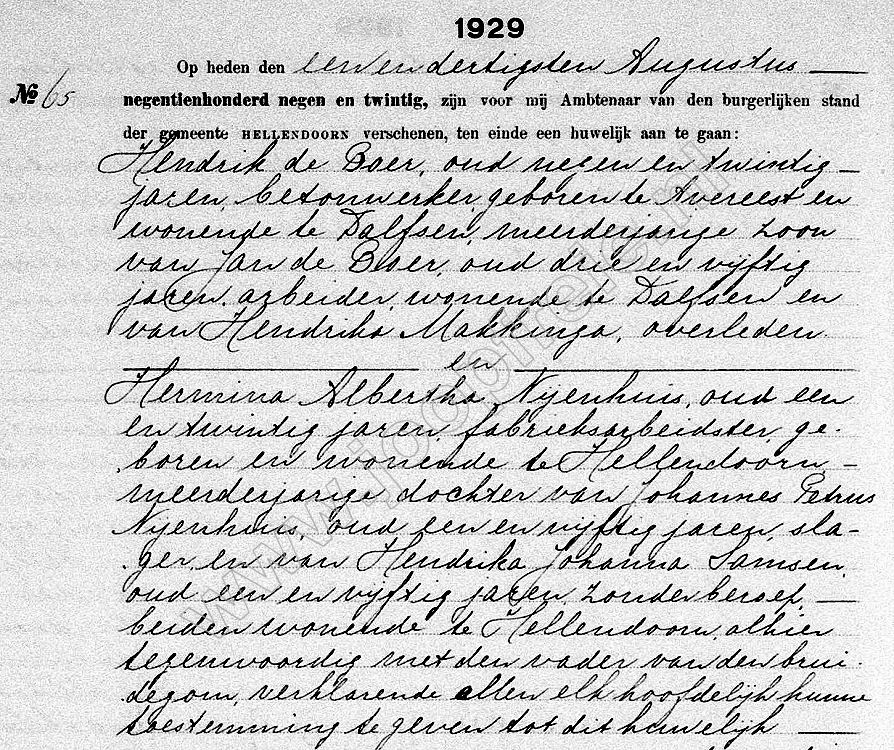 1929
Op heden den een en dertigsten Augustus —
№ 65
negentienhonderd negen en twintig, zijn voor mij Ambtenaar van den burgerlijken stand
der gemeente HELLENDOORN verschenen, ten einde een huwelijk aan te gaan:
Hendrik de Boer, oud negen en twintig —
jaren, betonwerker, geboren te Avereest en
wonende te Dalfsen, meerderjarige zoon
van Jan de Boer, oud drie en vijftig
jaren, arbeider, wonende te Dalfsen en
van Hendrika Makkinga, overleden.
— en —
Hermina Albertha Nijenhuis, oud een
en twintig jaren, fabrieksarbeidster, ge-
boren en wonende te Hellendoorn —
meerderjarige dochter van Johannes Petrus
Nijenhuis, oud een en vijftig jaren, sla-
ger, en van Hendrika Johanna Samsen,
oud een en vijftig jaren, zonder beroep, —
beiden wonende te Hellendoorn, alhier
tegenwoordig met den vader van den brui-
degom, verklarende allen elk hoofdelijk hunne
toestemming te geven tot dit huwelijk —